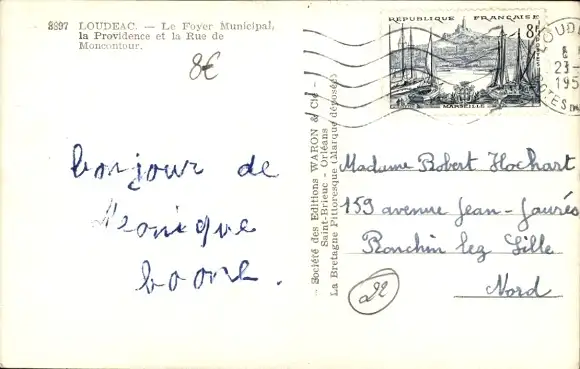 8897 LOUDEAC. — Le Foyer Municipal,
la Providence et la Rue de
Moncontour.
8€
bonjour de
Monique
boone.
Société des Editions WARON & Cie -
Saint-Brieuc - Orléans
La Bretagne Pittoresque (Marque déposée)
RÉPUBLIQUE FRANÇAISE
8F
MARSEILLE
LOUDE
23-
195
Madame Robert Hochart
159 avenue Jean-Jaurés
Ronchin lez Lille
Nord
22